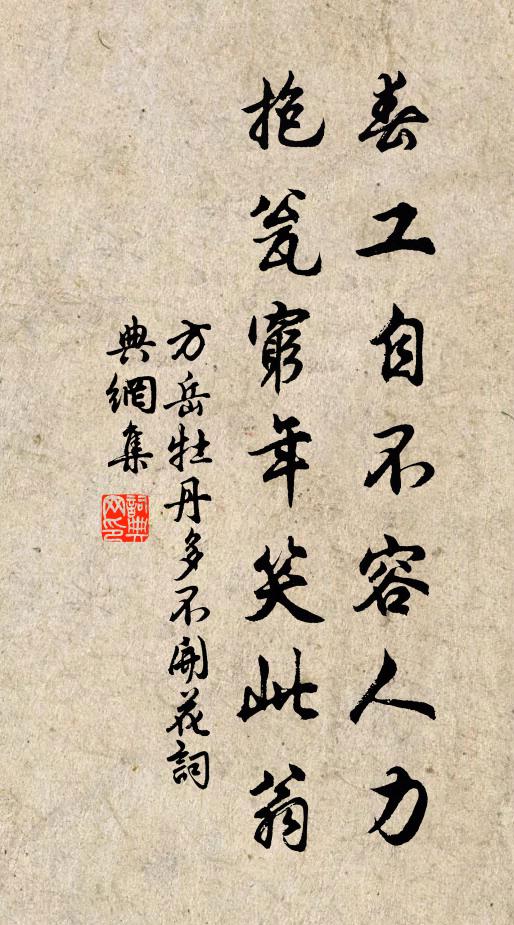 春工自不容人力
抱瓮窮年笑此翁
方岳牡丹多不開花詞
典網集
詞典網印